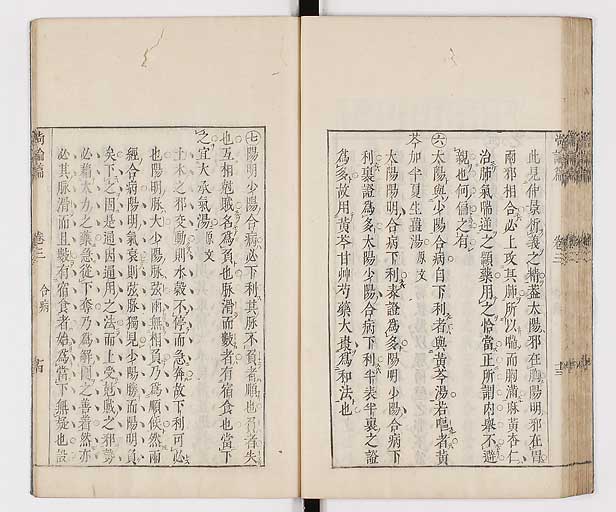 此見仲景析義之精蓋太陽邪在胸陽明邪在胃
兩邪相合必上攻其肺所以喘而胸滿麻黃杏仁
治肺氣喘逆之顓藥用之恰當正所謂內舉不避
親也何偏之有
㊅太陽與少陽合病自下利者與黃芩湯若嘔者黃
芩加半夏生薑湯原文
太陽陽明合病下利表證爲多陽明少陽合病下
利裏證爲多太陽少陽合病下利半表半裏之證
爲多故用黃芩甘艸芍藥大棗爲和法也
尚論篇 卷三 十三
㊆陽明少陽合病必下利其脉不負者順也負者失
也互相尅賊名爲負也脉滑而數者有宿食也當下
之宜大承氣湯原文
土木之邪交動則水穀不停而急奔故下利可必
也陽明脉大少陽脉弦兩無相負乃爲順候然兩
經合病陽明氣衰則弦脉獨見少陽勝而陽明負
矣下之固是通因通用之法而土受尅賊之邪勢
必藉大力之藥急從下奪乃爲解圍之善著然亦
必其脉滑而且數有宿食者始爲當下無疑也設
尚論篇 卷三 合病 十四